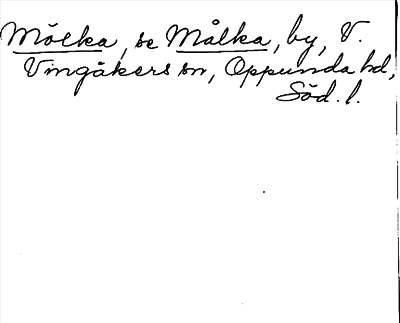 Mölka, se Målka, by, V.
Vingåkers sn, Oppunda hd,
Söd. l.